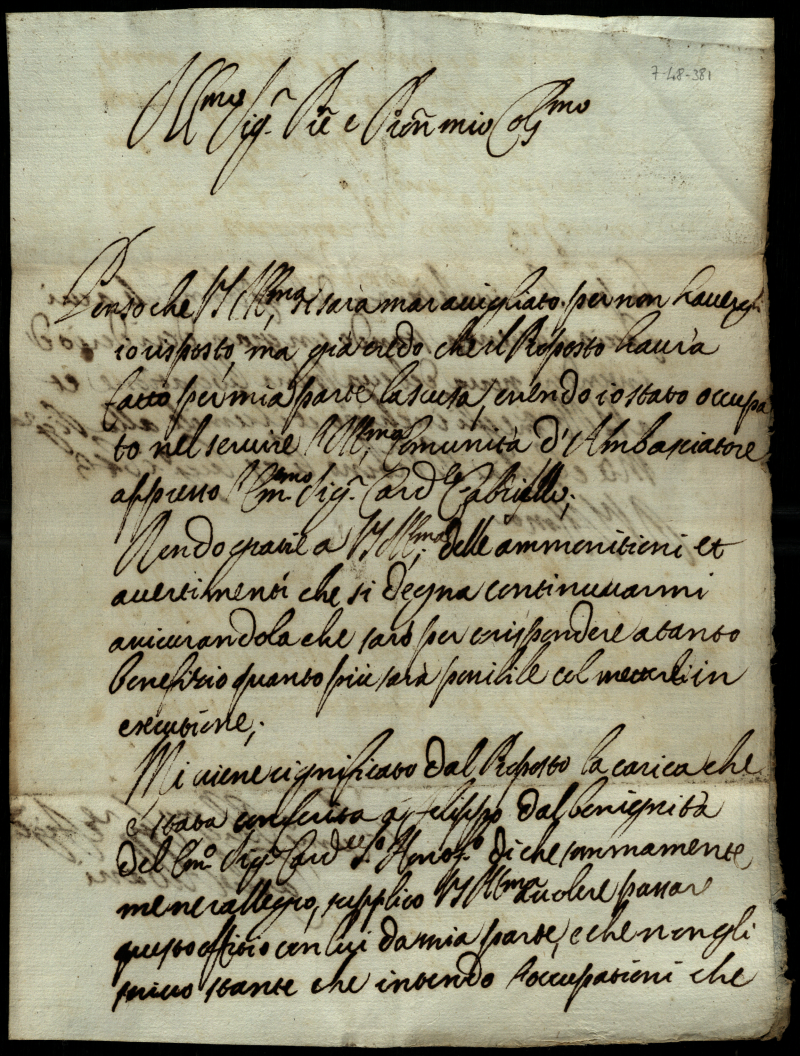 7-48-381
Ill.mo Sig.r P͞re e P͞ron mio Col.mo
Penso che V S Ill.ma, si sarà maravigliato per non havergli
io risposto, ma già credo che il Proposto havrà
fatto per mia parte la scusa, essendo io stato occupa
to nel servire l'Ill.ma Comunità d'Ambasciatore
appresso l'Em.mo Sig.r Card.le Gabrielli;
Rendo gratie a V S Ill.ma; delle ammonitioni et
avertimenti che si degna continuarmi
assicurandola che sarò per corispondere a tanto
benefitio quanto più sarà possibile col metterli in
esecutione;
Mi viene significato dal Proposto la carica che
è stata conferita a Filippo dal benignità
del Em.o Sig.r Card.le S.to di che sommamente
me ne rallegro, supplico V S Ill.ma a volere passar
questo offitio con lui da mia parte, e che non gli
scrivo stante che intendo l'occupationi che